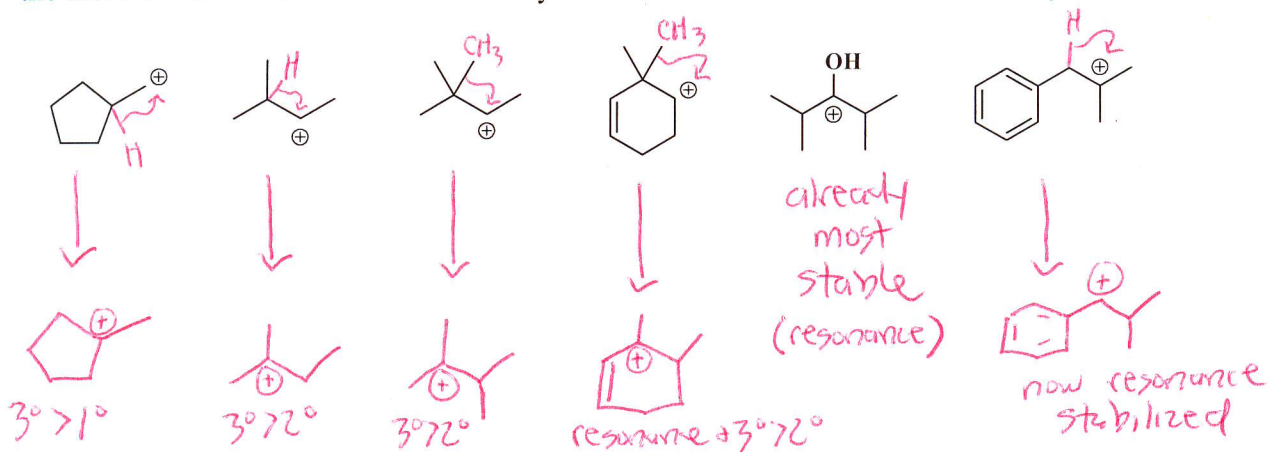 CH3
CH3
H
H
OH
H
⊕
⊕
⊕
⊕
⊕
⊕
already
most
stable
(resonance)
⊕
⊕
⊕
⊕
⊕
3° > 1°
3° > 2°
3° > 2°
resonance + 3° > 2°
now resonance
stabilized